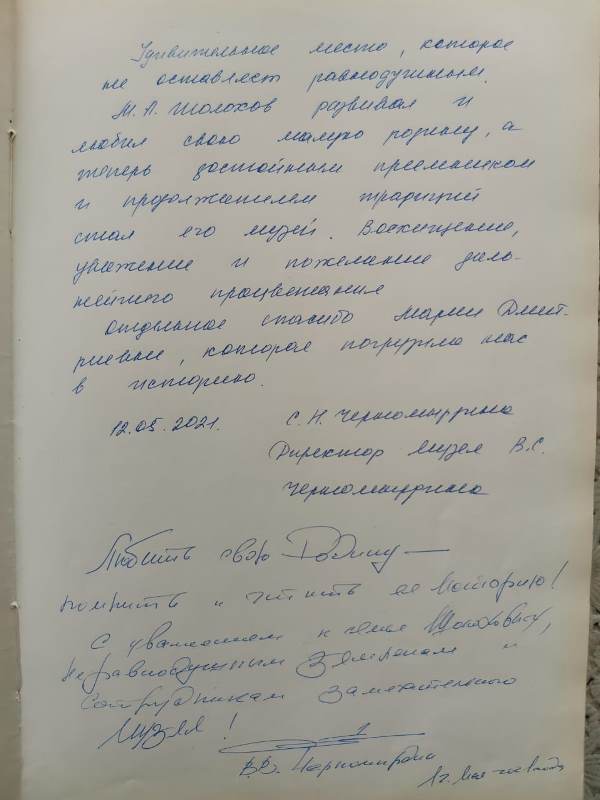 Удивительное место, которое
не оставляет равнодушным.
М.А. Шолохов развивал и
любил свою малую родину, а
теперь достойным преемником
и продолжателем традиций
стал его музей. Восхищение,
уважение и пожелание даль-
нейшего процветания
Отдельное спасибо Марии Дмит-
риевне, которая погрузила нас
в историю.
12.05.2021. С.Н. Черномырдина
Директор музея В.С.
Черномырдина
Любить свою Родину —
помнить и чтить ее историю!
С уважением к семье Шолоховых,
неравнодушным землякам и
сотрудникам замечательного
музея!
В.В. Черномырдин